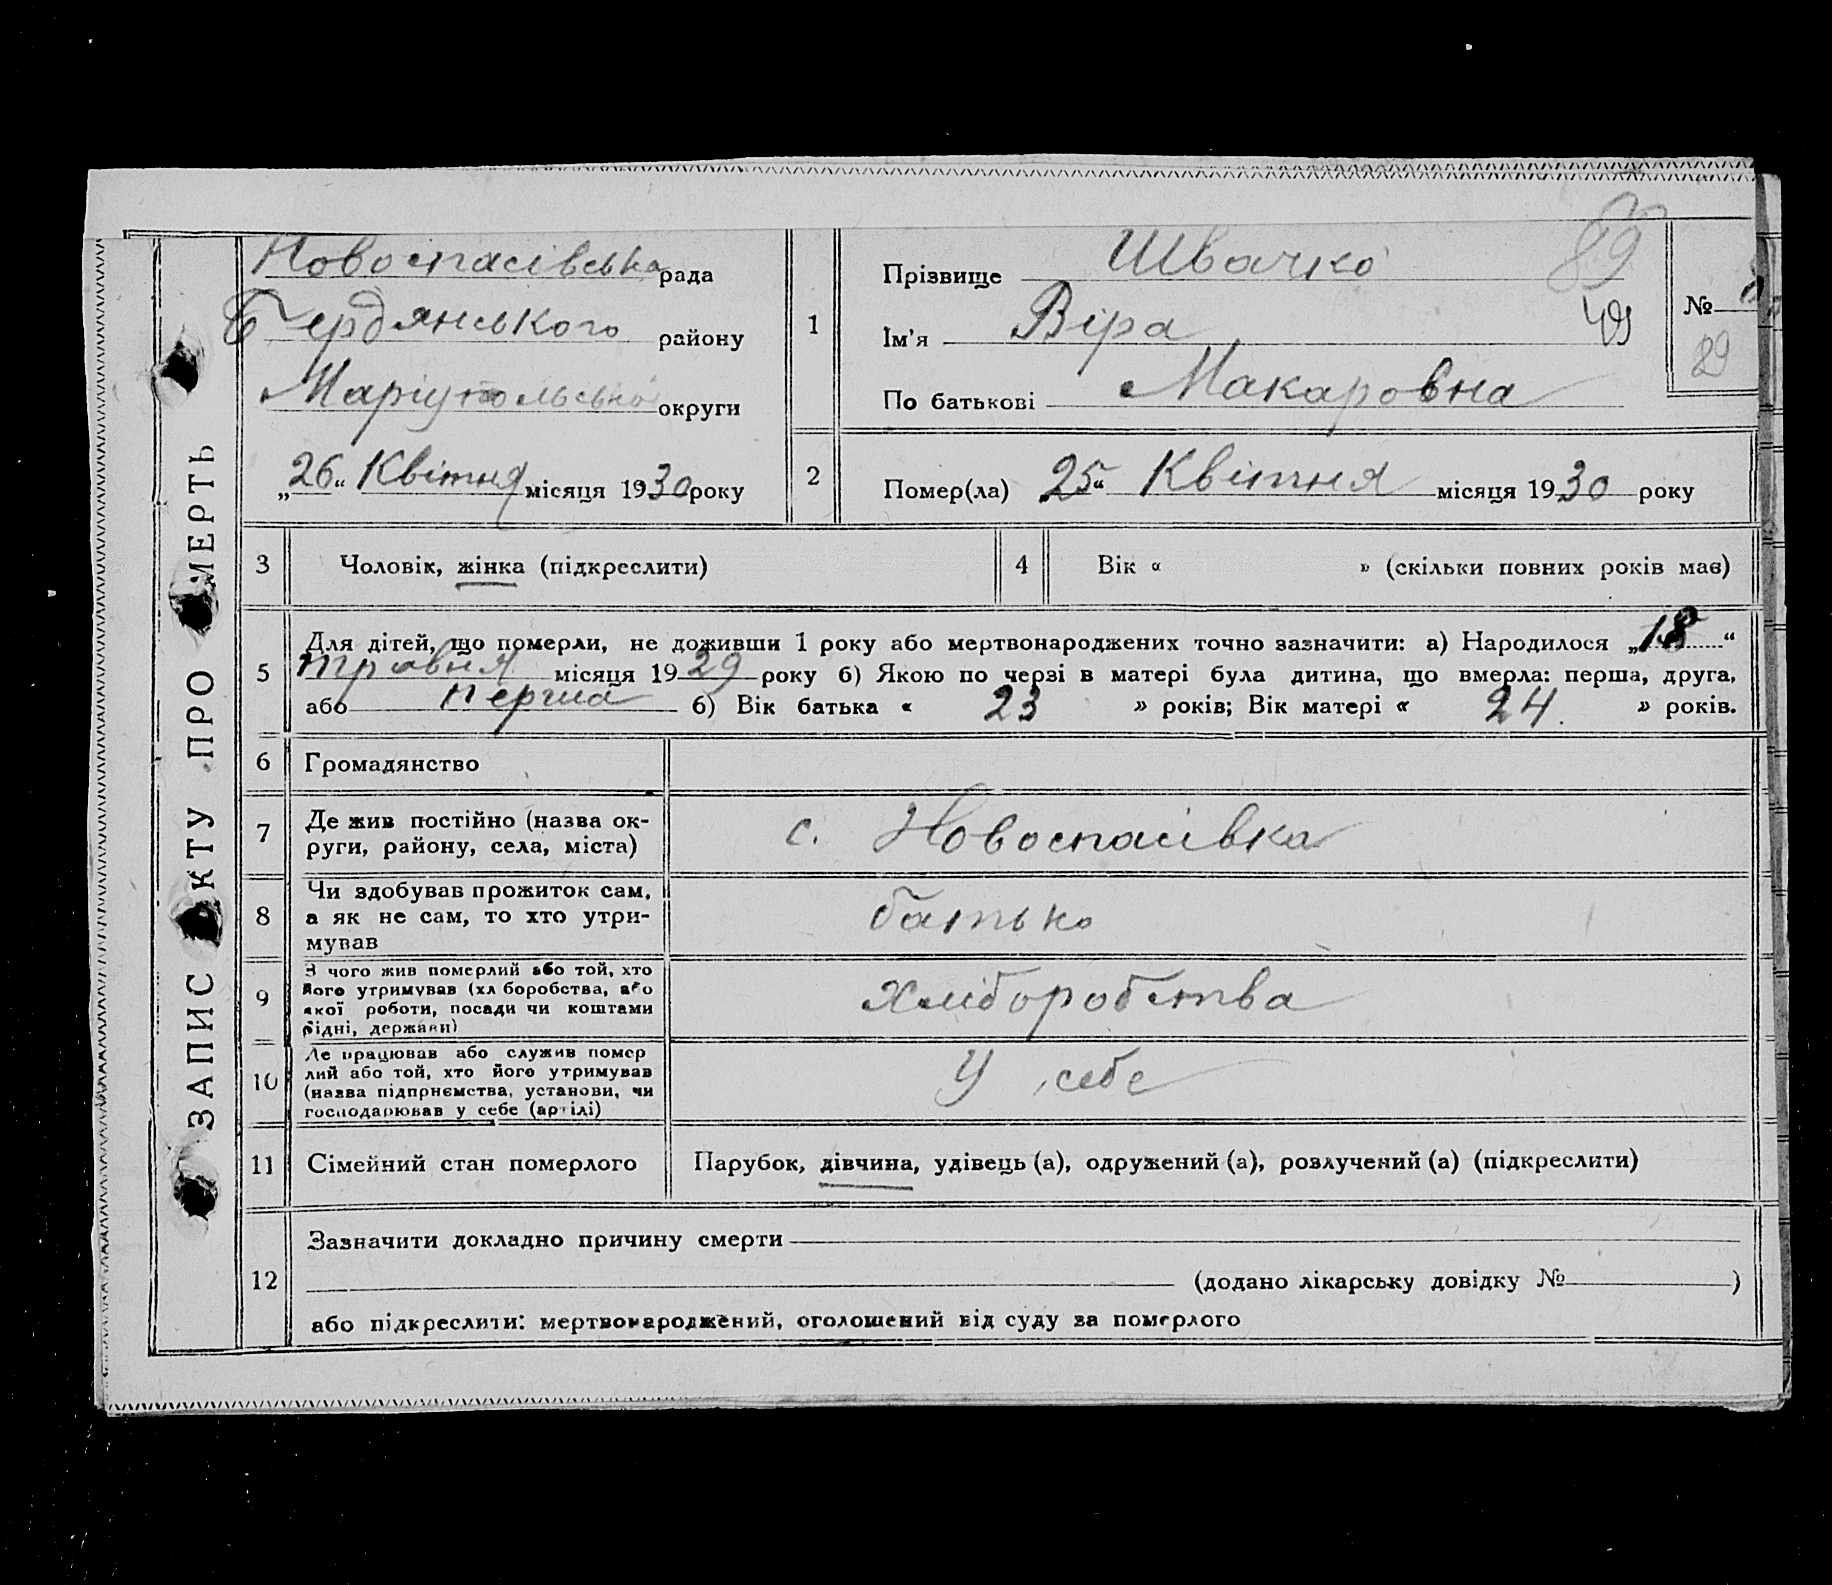 ЗАПИС АКТУ ПРО СМЕРТЬ
Новоспасівська рада
Бердянського району
Маріупольської округи
„26“ Квітня місяця 1930 року
1
Прізвище Швачко
Ім’я Віра
По батькові Макаровна
89
49
№
89
2
Помер(ла) 25“ Квітня місяця 1930 року
3
Чоловік, жінка (підкреслити)
4
Вік « » (скільки повних років має)
5
Для дітей, що померли, не доживши 1 року або мертвонароджених точно зазначити: а) Народилося „18“
травня місяця 1929 року б) Якою по черзі в матері була дитина, що вмерла: перша, друга,
або перша б) Вік батька « 23 » років; Вік матері « 24. » років.
6
Громадянство
7
Де жив постійно (назва ок-
руги, району, села, міста)
с. Новоспасівка
8
Чи здобував прожиток сам,
а як не сам, то хто утри-
мував
батько
9
З чого жив померлий або той, хто
його утримував (хліборобства, або
якої роботи, посади чи коштами
рідні, держави)
хліборобства
10
Де працював або служив помер
лий або той, хто його утримував
(назва підприємства, установи, чи
господарював у себе (артілі)
У себе
11
Сімейний стан померлого
Парубок, дівчина, удівець (а), одружений (а), розлучений (а) (підкреслити)
12
Зазначити докладно причину смерти
(додано лікарську довідку № )
або підкреслити: мертвонароджений, оголошений від суду за померлого